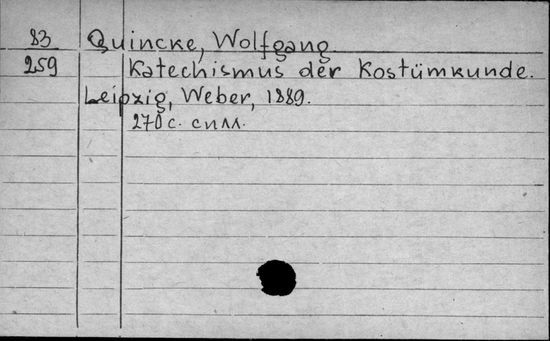 83 Quincke, Wolfgang.
259 Katechismus der Kostümkunde.
Leipzig, Weber, 1889.
270 с. с илл.